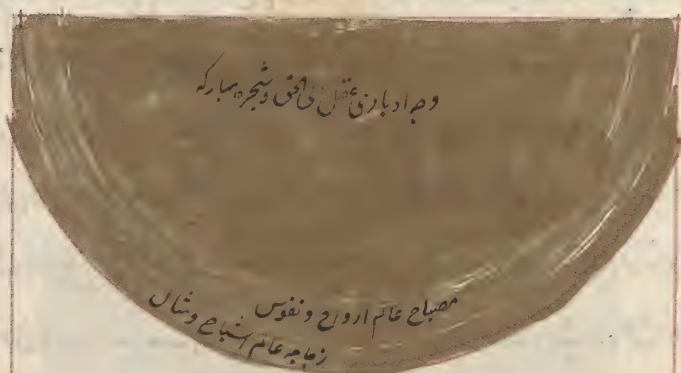 وجه ادبار عقل الی الحق و شجره مبارکه
مصباح عالم ارواح و نفوس
زجاجه عالم اشباح و مثال